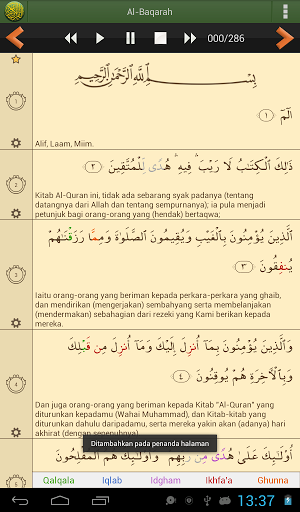 Al-Baqarah
000/286
بِسْمِ اللَّهِ الرَّحْمَٰنِ الرَّحِيمِ
الٓمٓ ﴿١﴾
1
Alif, Laam, Miim.
ذَٰلِكَ الْكِتَابُ لَا رَيْبَ ۛ فِيهِ ۛ هُدًى لِّلْمُتَّقِينَ ﴿٢﴾
2
Kitab Al-Quran ini, tidak ada sebarang syak padanya (tentang
datangnya dari Allah dan tentang sempurnanya); ia pula menjadi
petunjuk bagi orang-orang yang (hendak) bertaqwa;
الَّذِينَ يُؤْمِنُونَ بِالْغَيْبِ وَيُقِيمُونَ الصَّلَوٰةَ وَمِمَّا رَزَقْنَٰهُمْ
يُنفِقُونَ ﴿٣﴾
3
Iaitu orang-orang yang beriman kepada perkara-perkara yang ghaib,
dan mendirikan (mengerjakan) sembahyang serta membelanjakan
(mendermakan) sebahagian dari rezeki yang Kami berikan kepada
mereka.
وَالَّذِينَ يُؤْمِنُونَ بِمَآ أُنزِلَ إِلَيْكَ وَمَآ أُنزِلَ مِن قَبْلِكَ
وَبِالْآخِرَةِ هُمْ يُوقِنُونَ ﴿٤﴾
4
Dan juga orang-orang yang beriman kepada Kitab "Al-Quran" yang
diturunkan kepadamu (Wahai Muhammad), dan Kitab-kitab yang
diturunkan dahulu daripadamu, serta mereka yakin akan (adanya) hari
akhirat (dengan sepenuhnya).
Ditambahkan pada penanda halaman
أُو۟لَٰٓئِكَ عَلَىٰ هُدًى مِّن رَّبِّهِمْ وَأُو۟لَٰٓئِكَ هُمُ الْمُفْلِحُونَ
5
Qalqala Iqlab Idgham Ikhfa'a Ghunna
13:37